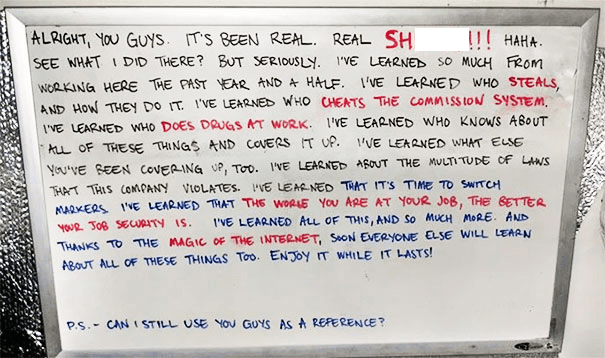 ALRIGHT, YOU GUYS. IT'S BEEN REAL. REAL SH !!! HAHA.
SEE WHAT I DID THERE? BUT SERIOUSLY. I'VE LEARNED SO MUCH FROM
WORKING HERE THE PAST YEAR AND A HALF. I'VE LEARNED WHO STEALS,
AND HOW THEY DO IT. I'VE LEARNED WHO CHEATS THE COMMISSION SYSTEM.
I'VE LEARNED WHO DOES DRUGS AT WORK. I'VE LEARNED WHO KNOWS ABOUT
ALL OF THESE THINGS AND COVERS IT UP. I'VE LEARNED WHAT ELSE
YOU'VE BEEN COVERING UP, TOO. I'VE LEARNED ABOUT THE MULTITUDE OF LAWS
THAT THIS COMPANY VIOLATES. I'VE LEARNED THAT IT'S TIME TO SWITCH
MARKERS. I'VE LEARNED THAT THE WORSE YOU ARE AT YOUR JOB, THE BETTER
YOUR JOB SECURITY IS. I'VE LEARNED ALL OF THIS, AND SO MUCH MORE. AND
THANKS TO THE MAGIC OF THE INTERNET, SOON EVERYONE ELSE WILL LEARN
ABOUT ALL OF THESE THINGS TOO. ENJOY IT WHILE IT LASTS!
P.S. - CAN I STILL USE YOU GUYS AS A REFERENCE?